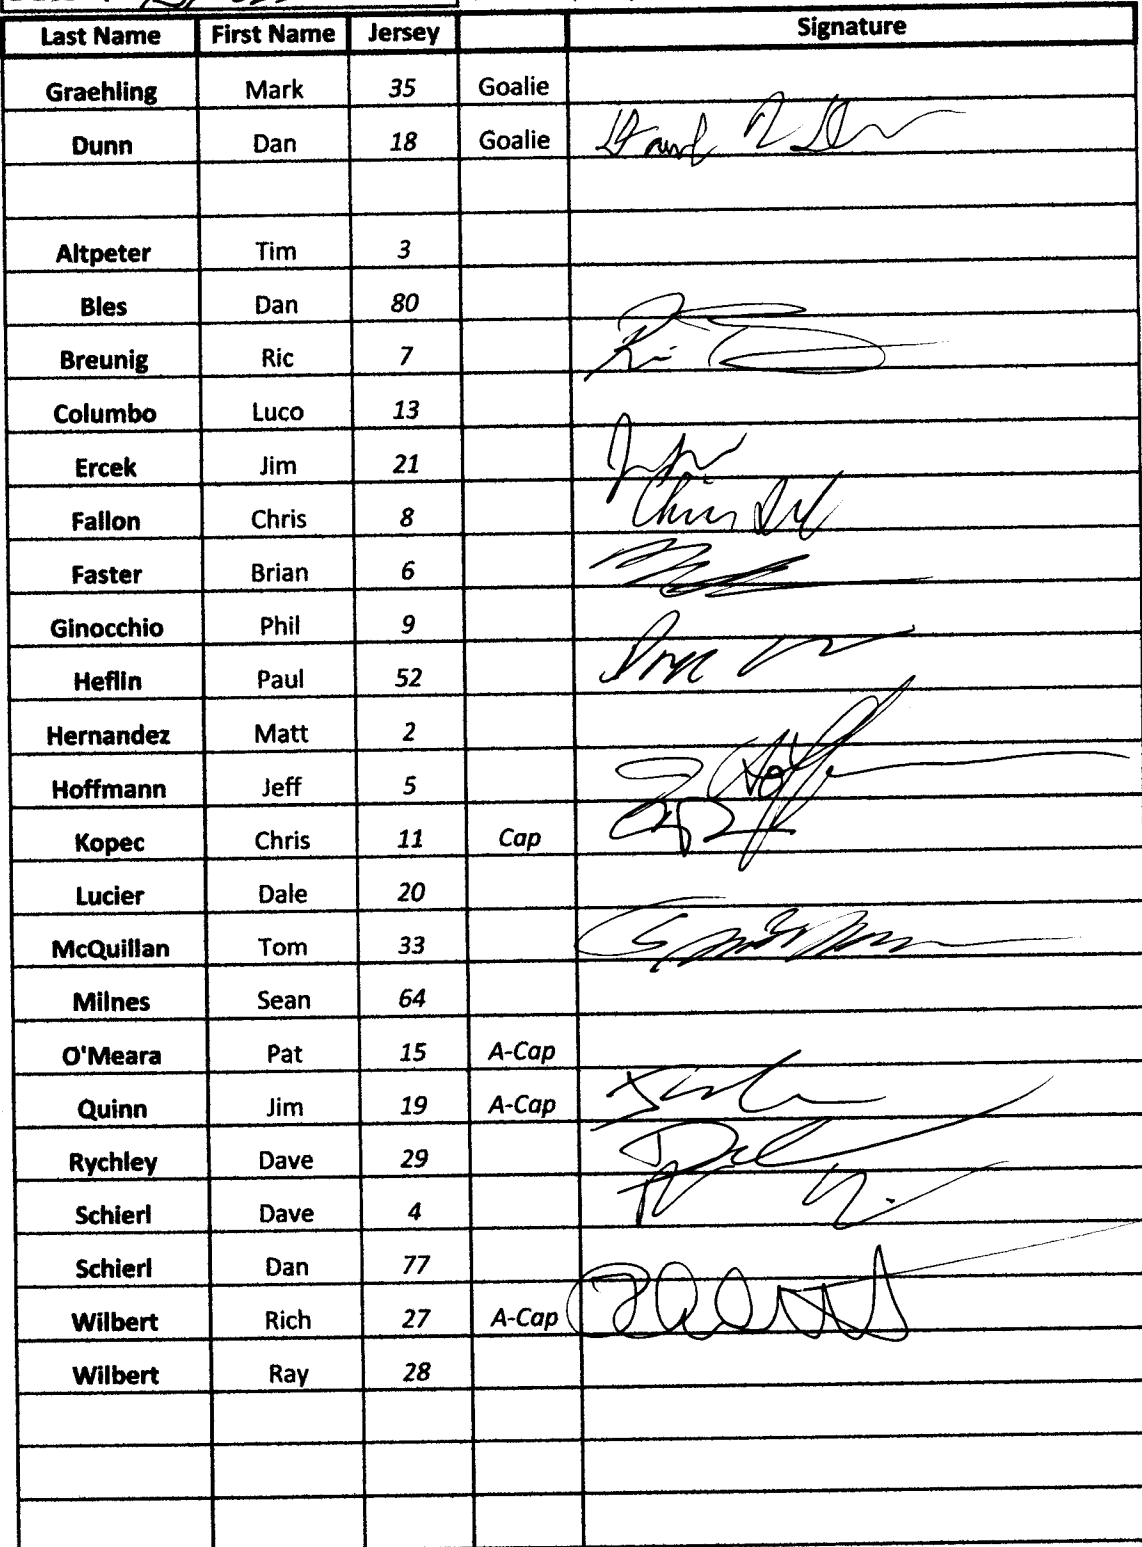 Last Name First Name Jersey Signature
Graehling Mark 35 Goalie
Dunn Dan 18 Goalie
Altpeter Tim 3
Bles Dan 80
Breunig Ric 7
Columbo Luco 13
Ercek Jim 21
Fallon Chris 8
Faster Brian 6
Ginocchio Phil 9
Heflin Paul 52
Hernandez Matt 2
Hoffmann Jeff 5
Kopec Chris 11 Cap
Lucier Dale 20
McQuillan Tom 33
Milnes Sean 64
O'Meara Pat 15 A-Cap
Quinn Jim 19 A-Cap
Rychley Dave 29
Schierl Dave 4
Schierl Dan 77
Wilbert Rich 27 A-Cap
Wilbert Ray 28